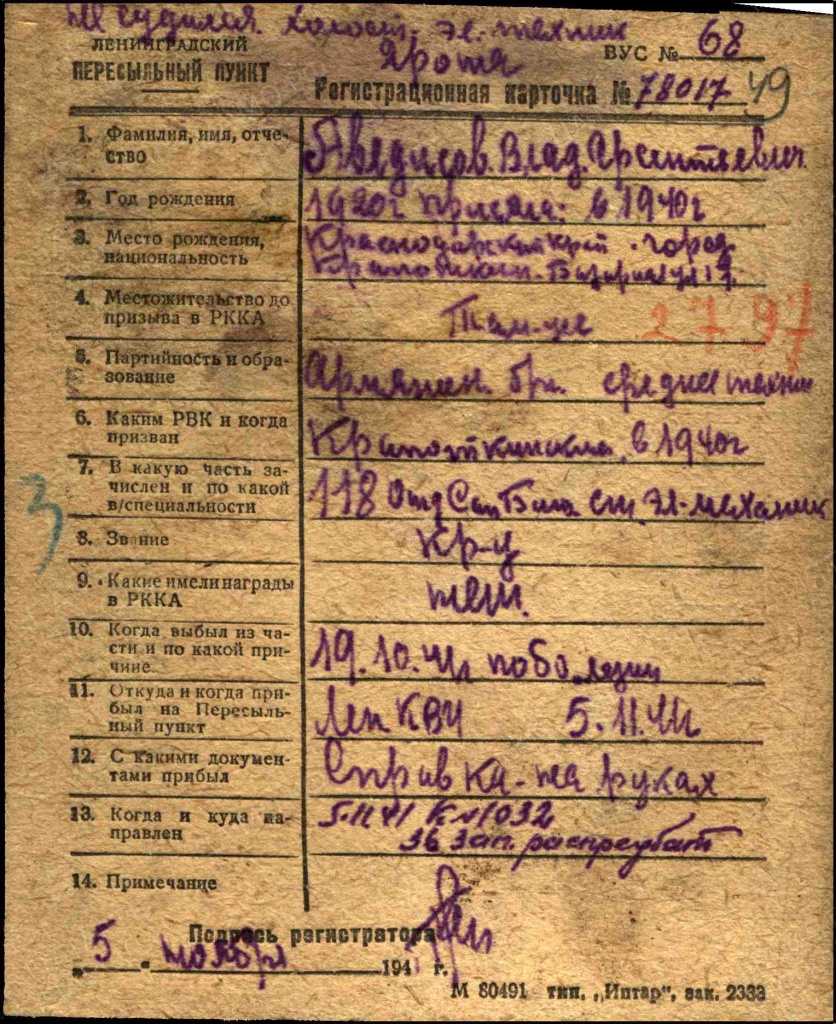 Не судился. Холост. эл. техник
ЛЕНИНГРАДСКИЙ
ПЕРЕСЫЛЬНЫЙ ПУНКТ
ВУС № 68
Рота
Регистрационная карточка № 78017 49
1. Фамилия, имя, отче-
ство
Аведисов. Влад. Арсентьевич
2. Год рождения
1920г присяга: в 1940г
3. Место рождения,
национальность
Краснодарский край. город
Кропоткин. Базарная ул 19.
4. Местожительство до
призыва в РККА
Там-же
2797
5. Партийность и обра-
зование
Армянин. бп. среднее техник
6. Каким РВК и когда
призван
Кропоткинским, в 1940г
7. В какую часть за-
числен и по какой
в/специальности
118 Отд Сап Бат. ст. эл-механик
3
8. Звание
кр-ц
9. Какие имели награды
в РККА
нет.
10. Когда выбыл из ча-
сти и по какой при-
чине
19.10.41 по болезни
11. Откуда и когда при-
был на Пересыль-
ный пункт
Лен КВИ 5.11.41г
12. С какими докумен-
тами прибыл
Справка-на руках
13. Когда и куда на-
правлен
5.11.41 К №1032
36 зап. распредбат
14. Примечание
Подпись регистратора
„ 5 “ ноября 194 г.
М 80491 тип. „Интар“, зак. 2333